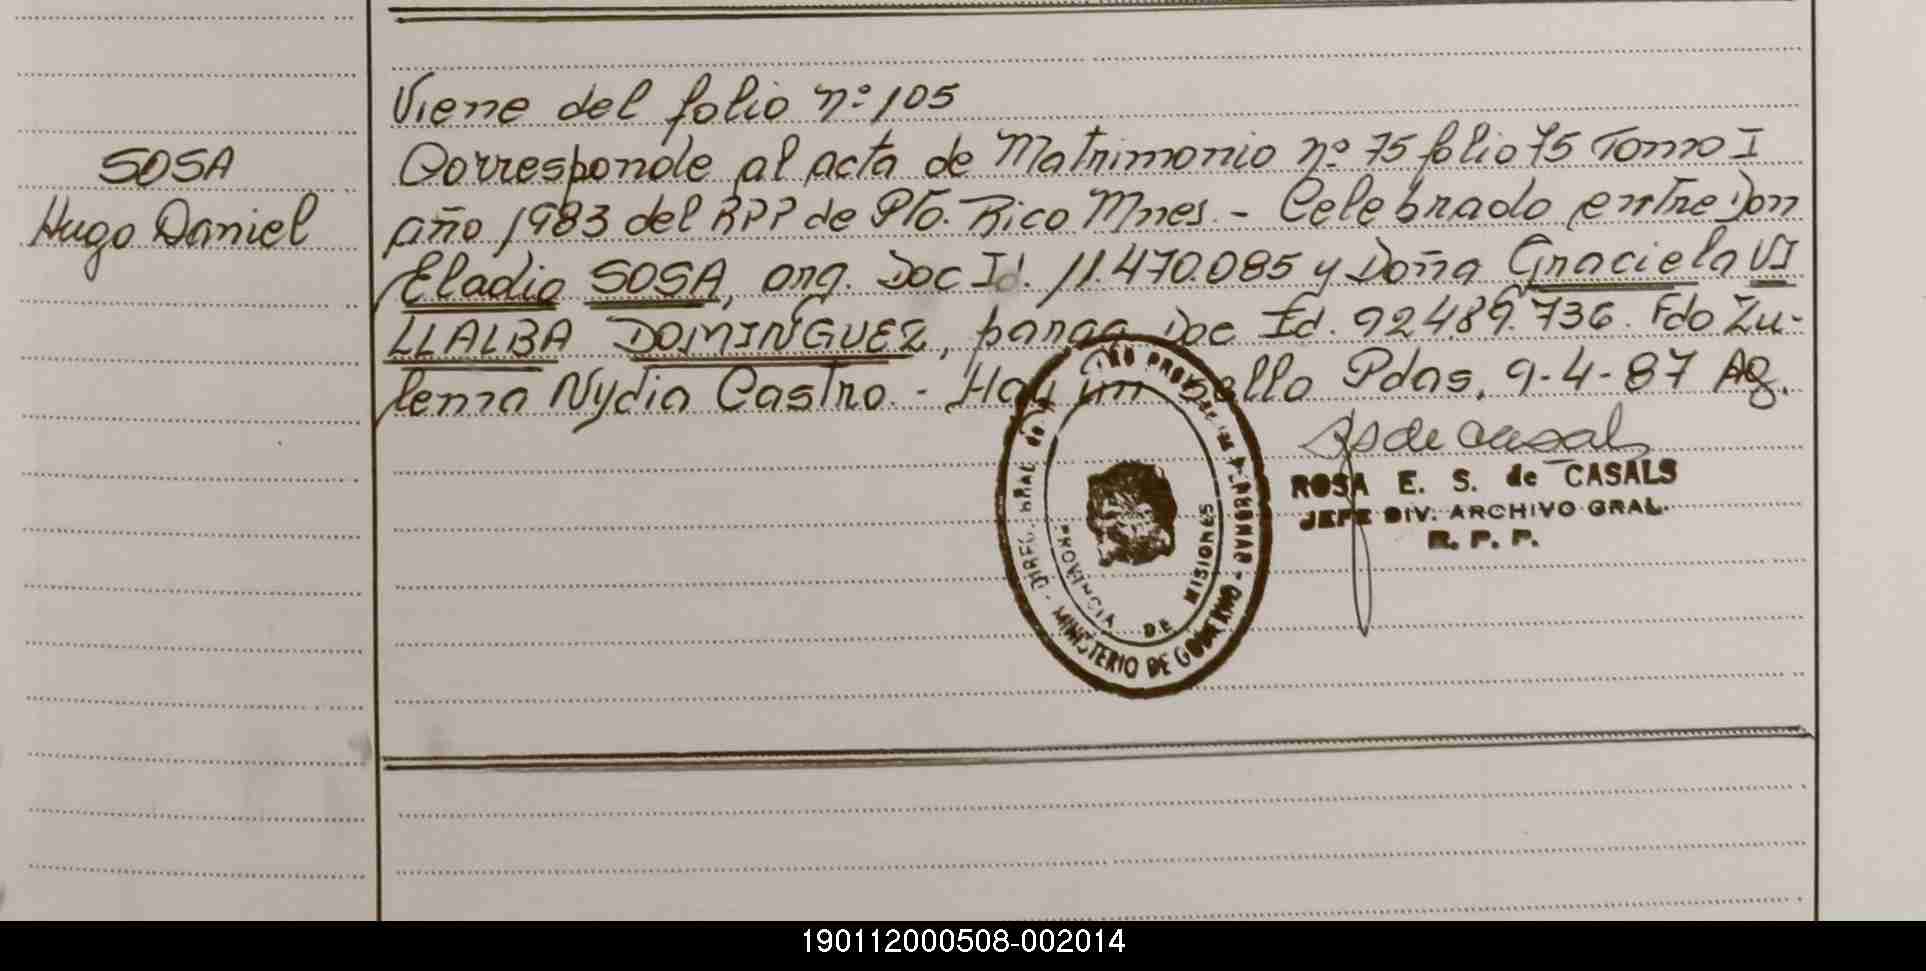 Viene del folio nº 105
SOSA
Corresponde al acta de Matrimonio nº 75 folio 75 Tomo I
Hugo Daniel
año 1983 del RPP de Pto. Rico Mnes. - Celebrado entre Don
Eladio SOSA, arg. Doc Id. 11.470.085 y Doña Graciela VI
LLALBA DOMINGUEZ, parag. Doc Id. 92.489.736. Fdo Zu-
lema Nydia Castro. - Hay un sello Pdas, 9-4-87 Ag.
ROSA E. S. de CASALS
JEFE DIV. ARCHIVO GRAL.
R. P. P.
MINISTERIO DE GOBIERNO
PROVINCIA DE MISIONES
190112000508-002014